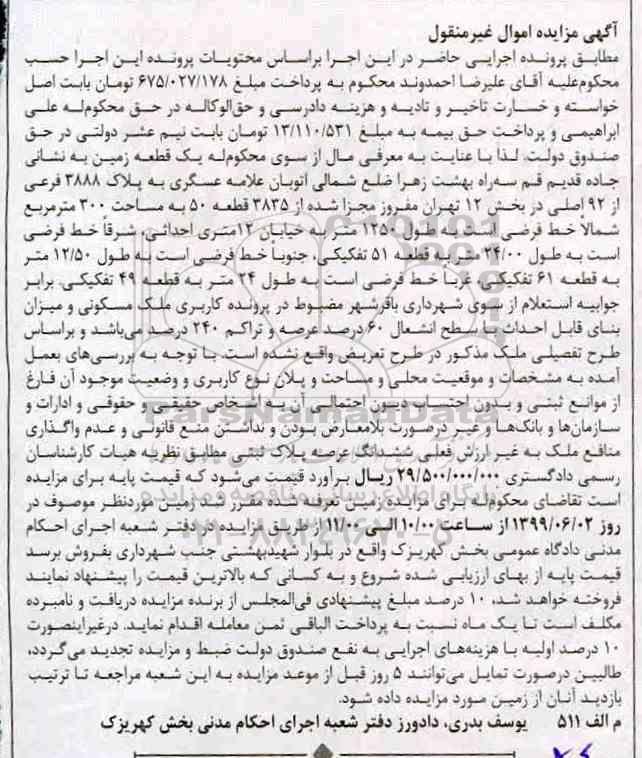 آگهی مزایده اموال غیرمنقول
مطابق پرونده اجرایی حاضر در این اجرا براساس محتویات پرونده این اجرا حسب
محکوم‌علیه آقای علیرضا احمدوند محکوم به پرداخت مبلغ ۶۷۵/۰۲۷/۱۷۸ تومان بابت اصل
خواسته و خسارت تاخیر و تادیه و هزینه دادرسی و حق‌الوکاله در حق محکوم‌له علی
ابراهیمی و پرداخت حق بیمه به مبلغ ۱۳/۱۱۰/۵۳۱ تومان بابت نیم عشر دولتی در حق
صندوق دولت. لذا با عنایت به معرفی مال از سوی محکوم‌له یک قطعه زمین به نشانی
جاده قدیم قم سه‌راه بهشت زهرا ضلع شمالی اتوبان علامه عسگری به پلاک ۳۸۸۸ فرعی
از ۹۲ اصلی در بخش ۱۲ تهران مفروز مجزا شده از ۳۸۳۵ قطعه ۵۰ به مساحت ۳۰۰ مترمربع
شمالاً خط فرضی است به طول ۱۲۵۰ متر به خیابان ۱۲متری احداثی، شرقاً خط فرضی
است به طول ۲۴/۰۰ متر به قطعه ۵۱ تفکیکی، جنوباً خط فرضی است به طول ۱۲/۵۰ متر
به قطعه ۶۱ تفکیکی، غرباً خط فرضی است به طول ۲۴ متر به قطعه ۴۹ تفکیکی. برابر
جوابیه استعلام از سوی شهرداری باقرشهر مضبوط در پرونده کاربری ملک مسکونی و میزان
بنای قابل احداث با سطح اشغال ۶۰ درصد عرصه و تراکم ۲۴۰ درصد می‌باشد و براساس
طرح تفصیلی ملک مذکور در طرح تعریض واقع نشده است. با توجه به بررسی‌های بعمل
آمده به مشخصات و موقعیت محلی و مساحت و پلان نوع کاربری و وضعیت موجود آن فارغ
از موانع ثبتی و بدون احتساب دیون احتمالی آن به اشخاص حقیقی و حقوقی و ادارات و
سازمان‌ها و بانک‌ها و غیر درصورت بلامعارض بودن و نداشتن منع قانونی و عدم واگذاری
منافع ملک به غیر ارزش فعلی ششدانگ عرصه پلاک ثبتی مطابق نظریه هیات کارشناسان
رسمی دادگستری ۲۹/۵۰۰/۰۰۰/۰۰۰ ریال برآورد قیمت می‌شود که قیمت پایه برای مزایده
است تقاضای محکوم‌له برای مزایده زمین تعرفه شده مقرر شد زمین موردنظر موصوف در
روز ۱۳۹۹/۰۶/۰۲ از ساعت ۱۰/۰۰ الی ۱۱/۰۰ از طریق مزایده در دفتر شعبه اجرای احکام
مدنی دادگاه عمومی بخش کهریزک واقع در بلوار شهیدبهشتی جنب شهرداری بفروش برسد
قیمت پایه از بهای ارزیابی شده شروع و به کسانی که بالاترین قیمت را پیشنهاد نمایند
فروخته خواهد شد، ۱۰ درصد مبلغ پیشنهادی فی‌المجلس از برنده مزایده دریافت و نامبرده
مکلف است تا یک ماه نسبت به پرداخت الباقی ثمن معامله اقدام نماید. درغیراینصورت
۱۰ درصد اولیه با هزینه‌های اجرایی به نفع صندوق دولت ضبط و مزایده تجدید می‌گردد،
طالبین درصورت تمایل می‌توانند ۵ روز قبل از موعد مزایده به این شعبه مراجعه تا ترتیب
بازدید آنان از زمین مورد مزایده داده شود.
م الف ۵۱۱ یوسف بدری، دادورز دفتر شعبه اجرای احکام مدنی بخش کهریزک